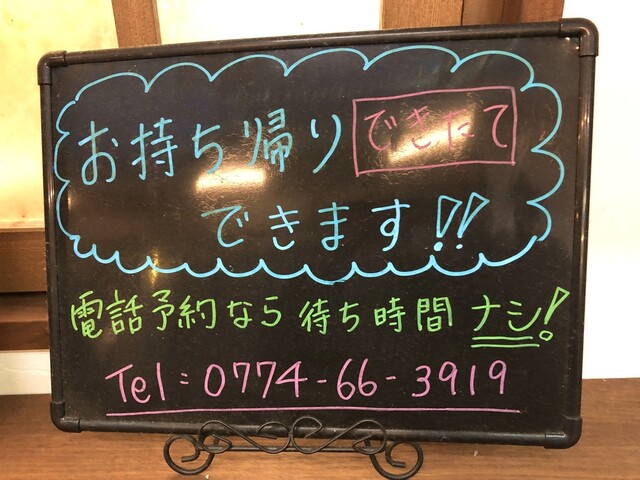 お持ち帰り できたて
できます!!
電話予約なら 待ち時間 ナシ!
Tel:0774-66-3919